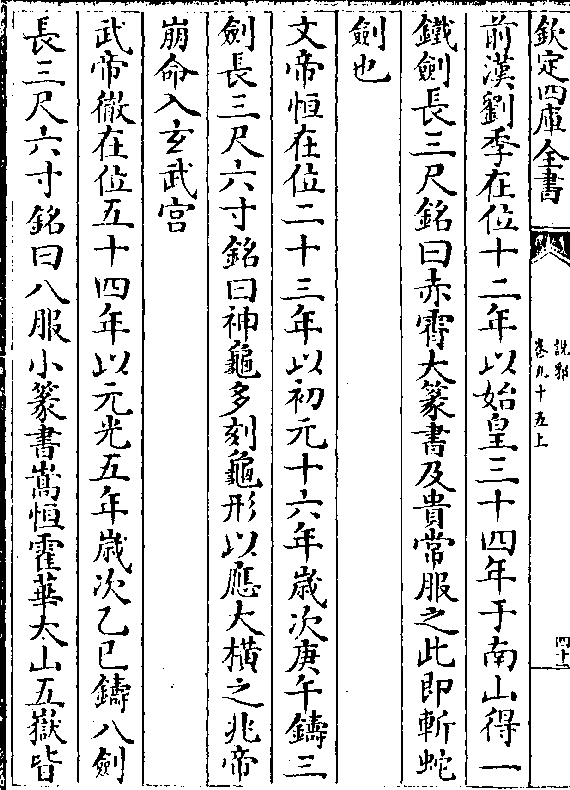 欽定四庫全書
說郛
卷九十五上
四十二
前漢劉季在位十二年以始皇三十四年于南山得一
鐵劍長三尺銘曰赤霄大篆書及貴常服之此即斬蛇
劍也
文帝恒在位二十三年以初元十六年歳次庚午鑄三
劍長三尺六寸銘曰神龜多刻龜形以應大橫之兆帝
崩命入玄武宫
武帝徹在位五十四年以元光五年歳次乙巳鑄八劍
長三尺六寸銘曰八服小篆書嵩恒霍華太山五嶽皆